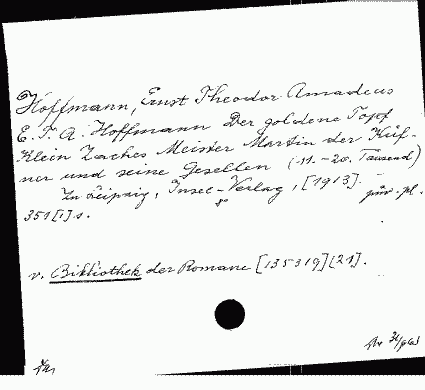 Hoffmann, Ernst Theodor Amadeus
E. T. A. Hoffmann Der goldene Topf
Klein Zaches Meister Martin der Küf-
ner und seine Gesellen (11.-20. Tausend)
In Leipzig, Insel-Verlag, [1913].
8°
351 [1] s.
v. Bibliothek der Romane [135319] [21].